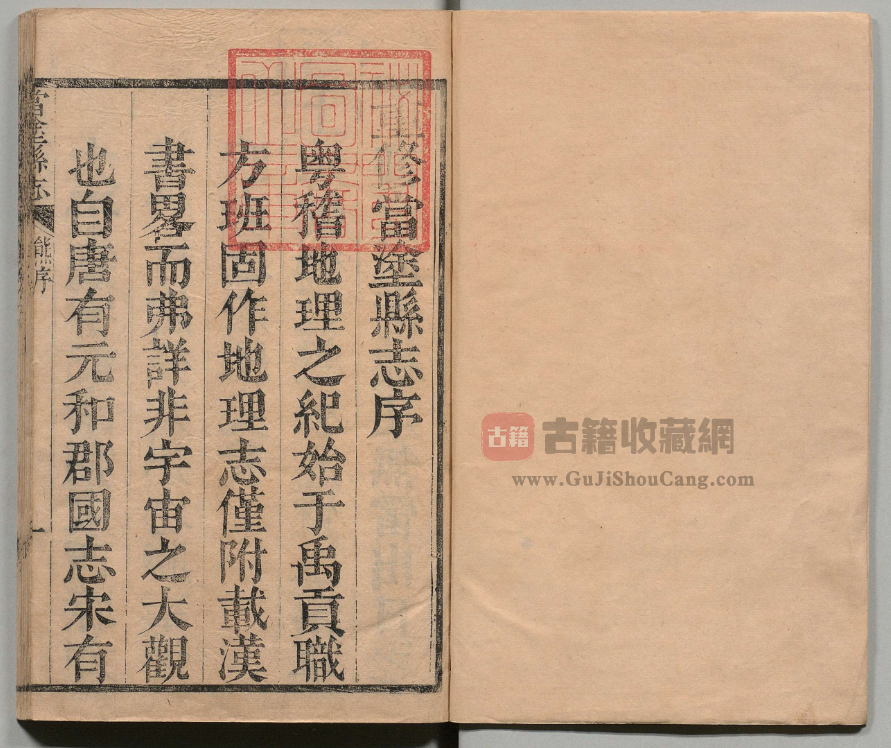 重修當塗縣志序
粤稽地理之紀始于禹貢職
方班固作地理志僅附載漢
書畧而弗詳非宇宙之大觀
也自唐有元和郡國志宋有
當塗縣志
熊序
一
古籍
古籍收藏網
www.GuJiShouCang.com